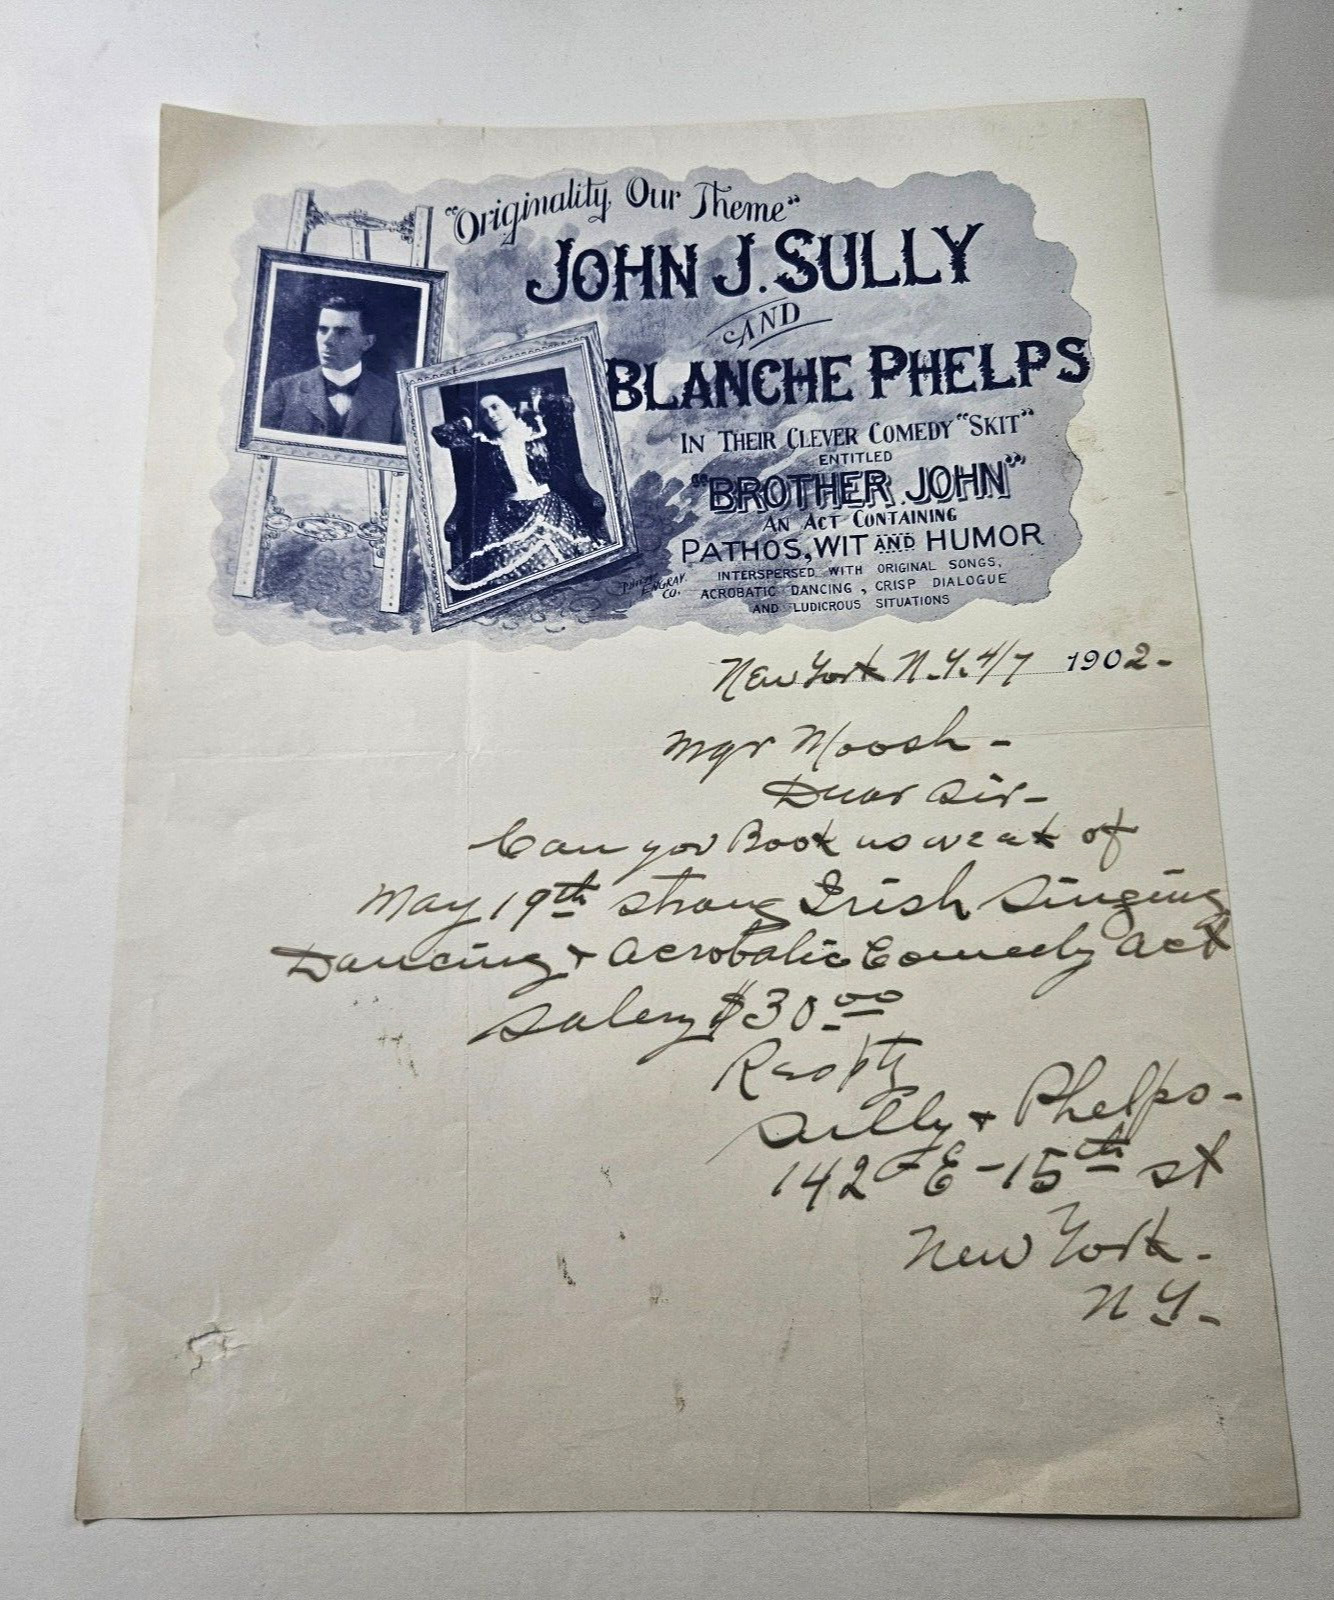 "Originality, Our Theme"
JOHN J. SULLY
AND
BLANCHE PHELPS
IN THEIR CLEVER COMEDY "SKIT"
ENTITLED
"BROTHER JOHN"
AN ACT CONTAINING
PATHOS, WIT AND HUMOR
INTERSPERSED WITH ORIGINAL SONGS,
ACROBATIC DANCING, CRISP DIALOGUE
AND LUDICROUS SITUATIONS
ENGRAV. CO.
New York N.Y. 4/7 1902-
Mgr Moosh -
Dear Sir -
Can you Book us week of
May 19th strong Irish Singing
Dancing + Acrobatic Comedy act
Salery $30.00
Respty
Sully + Phelps -
142 - E - 15th st
New York -
N Y -